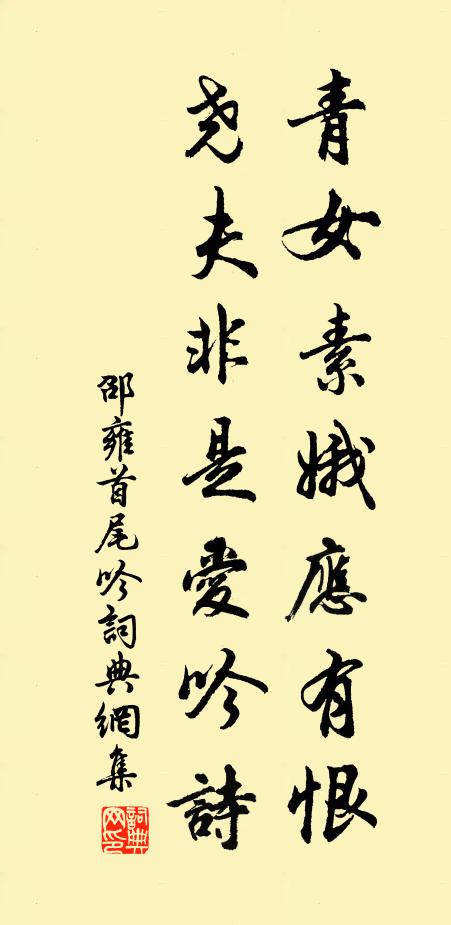 青女素娥應有恨
尧夫非是愛吟詩
邵雍首尾吟詞典網集
詞典網印